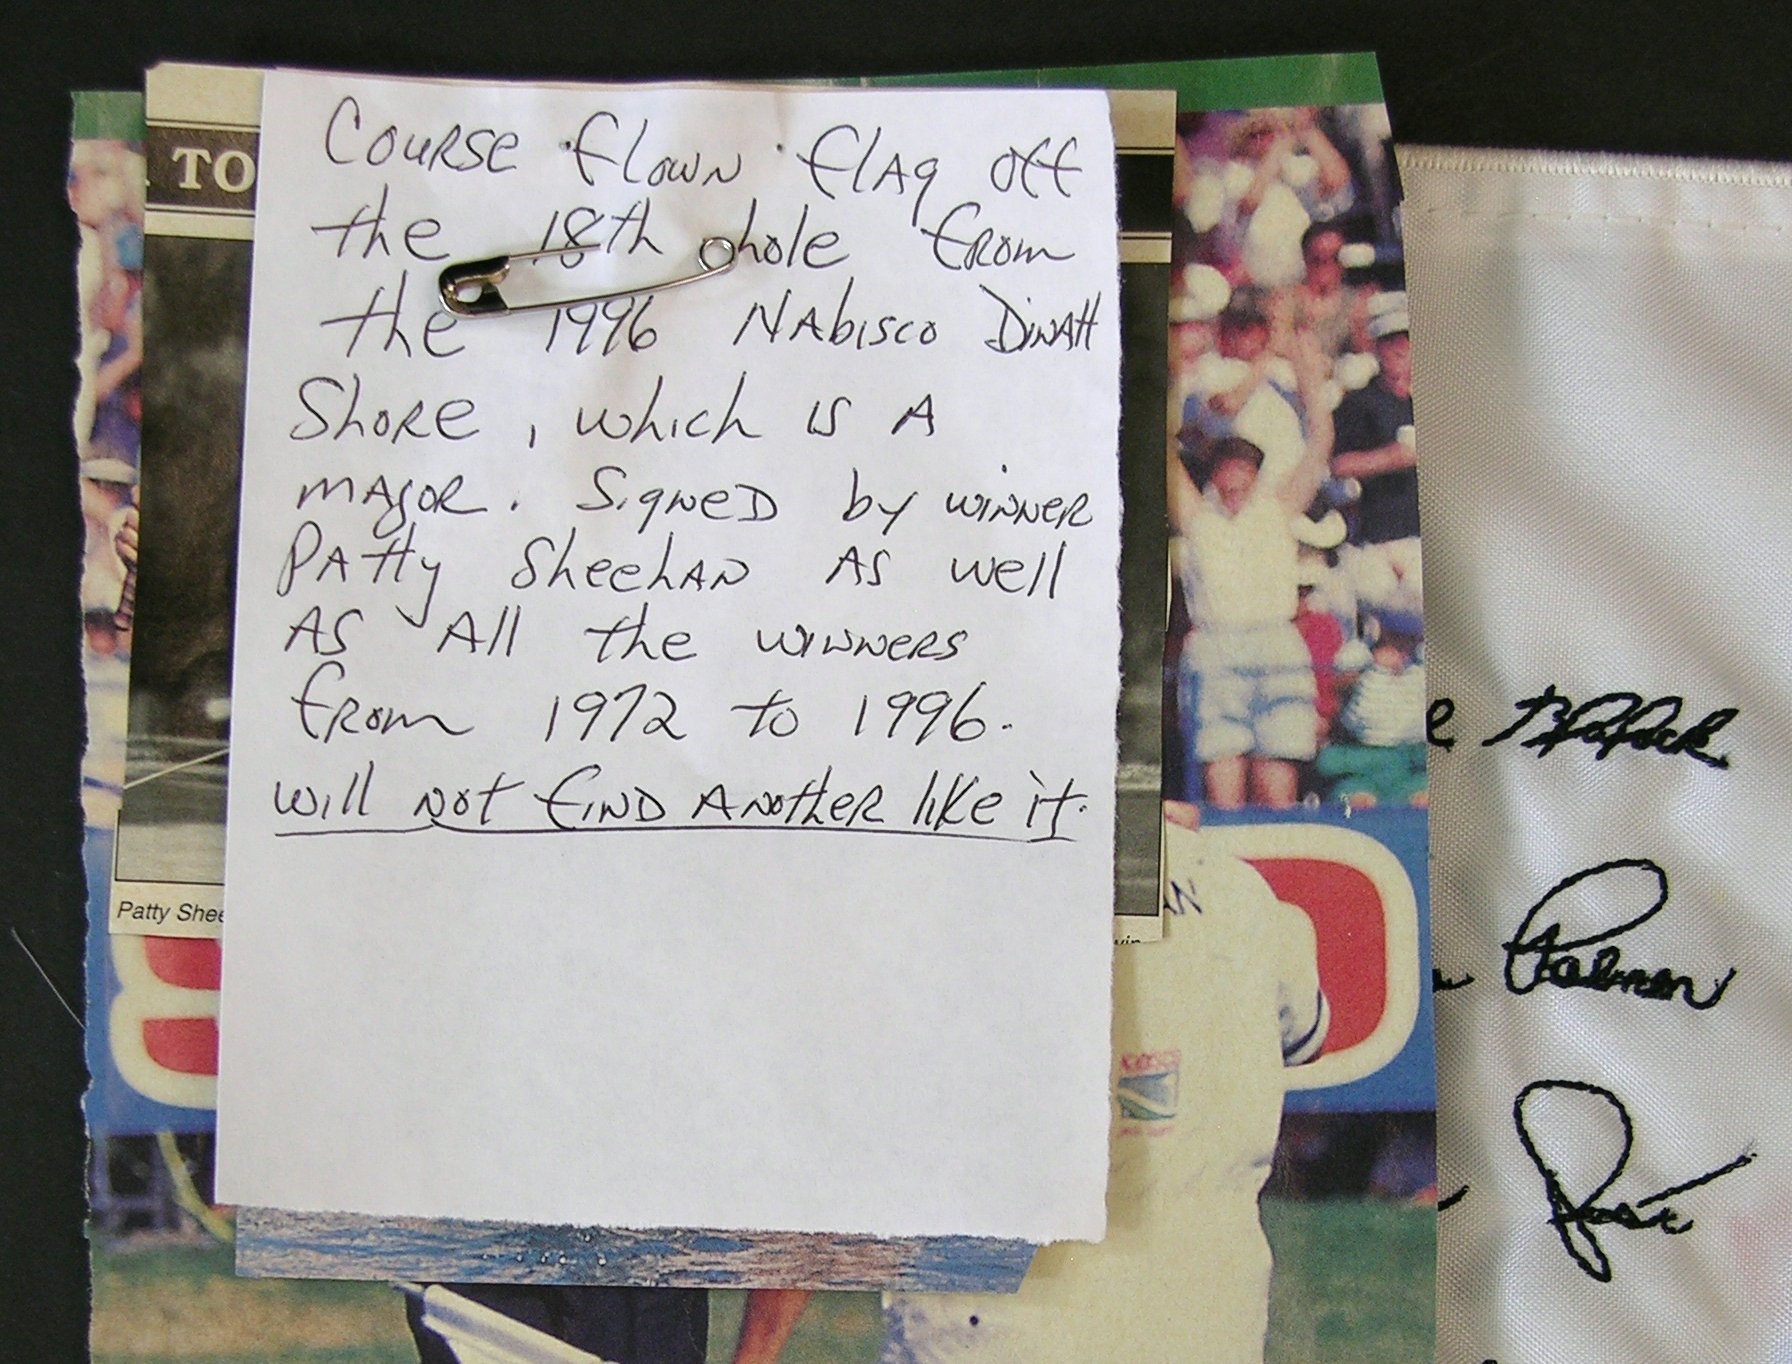 Course flown flag off
the 18th hole from
the 1996 Nabisco Dinah
Shore, which is a
major. Signed by winner
Patty Sheehan as well
as all the winners
from 1972 to 1996.
will not find another like it.
TO
Patty Shee